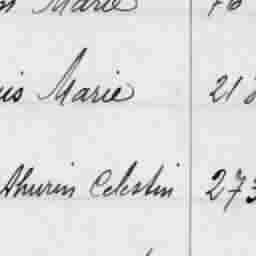 Marie 76
is Marie 21
thurin Celestin 273